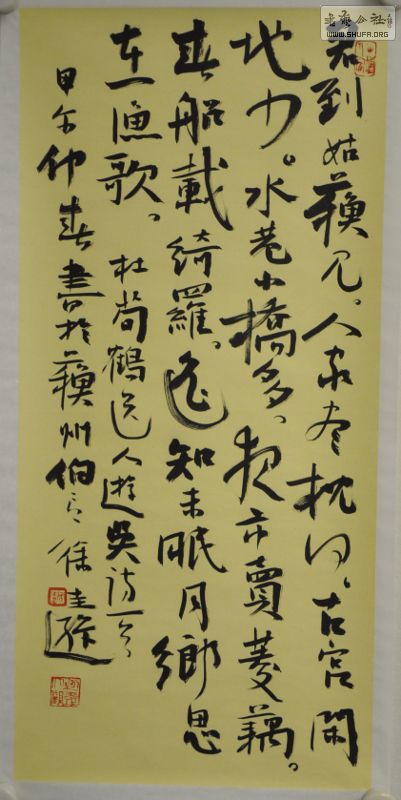 书艺公社
WWW.SHUFA.ORG
君到姑蘇見。人家尽枕河。古宮閑
地少。水巷小橋多。夜市賣菱藕。
春船載綺羅。遥知未眠月鄉思
在漁歌。杜荀鶴送人遊吳詩一首
甲午仲春書於蘇州伯言徐圭逊